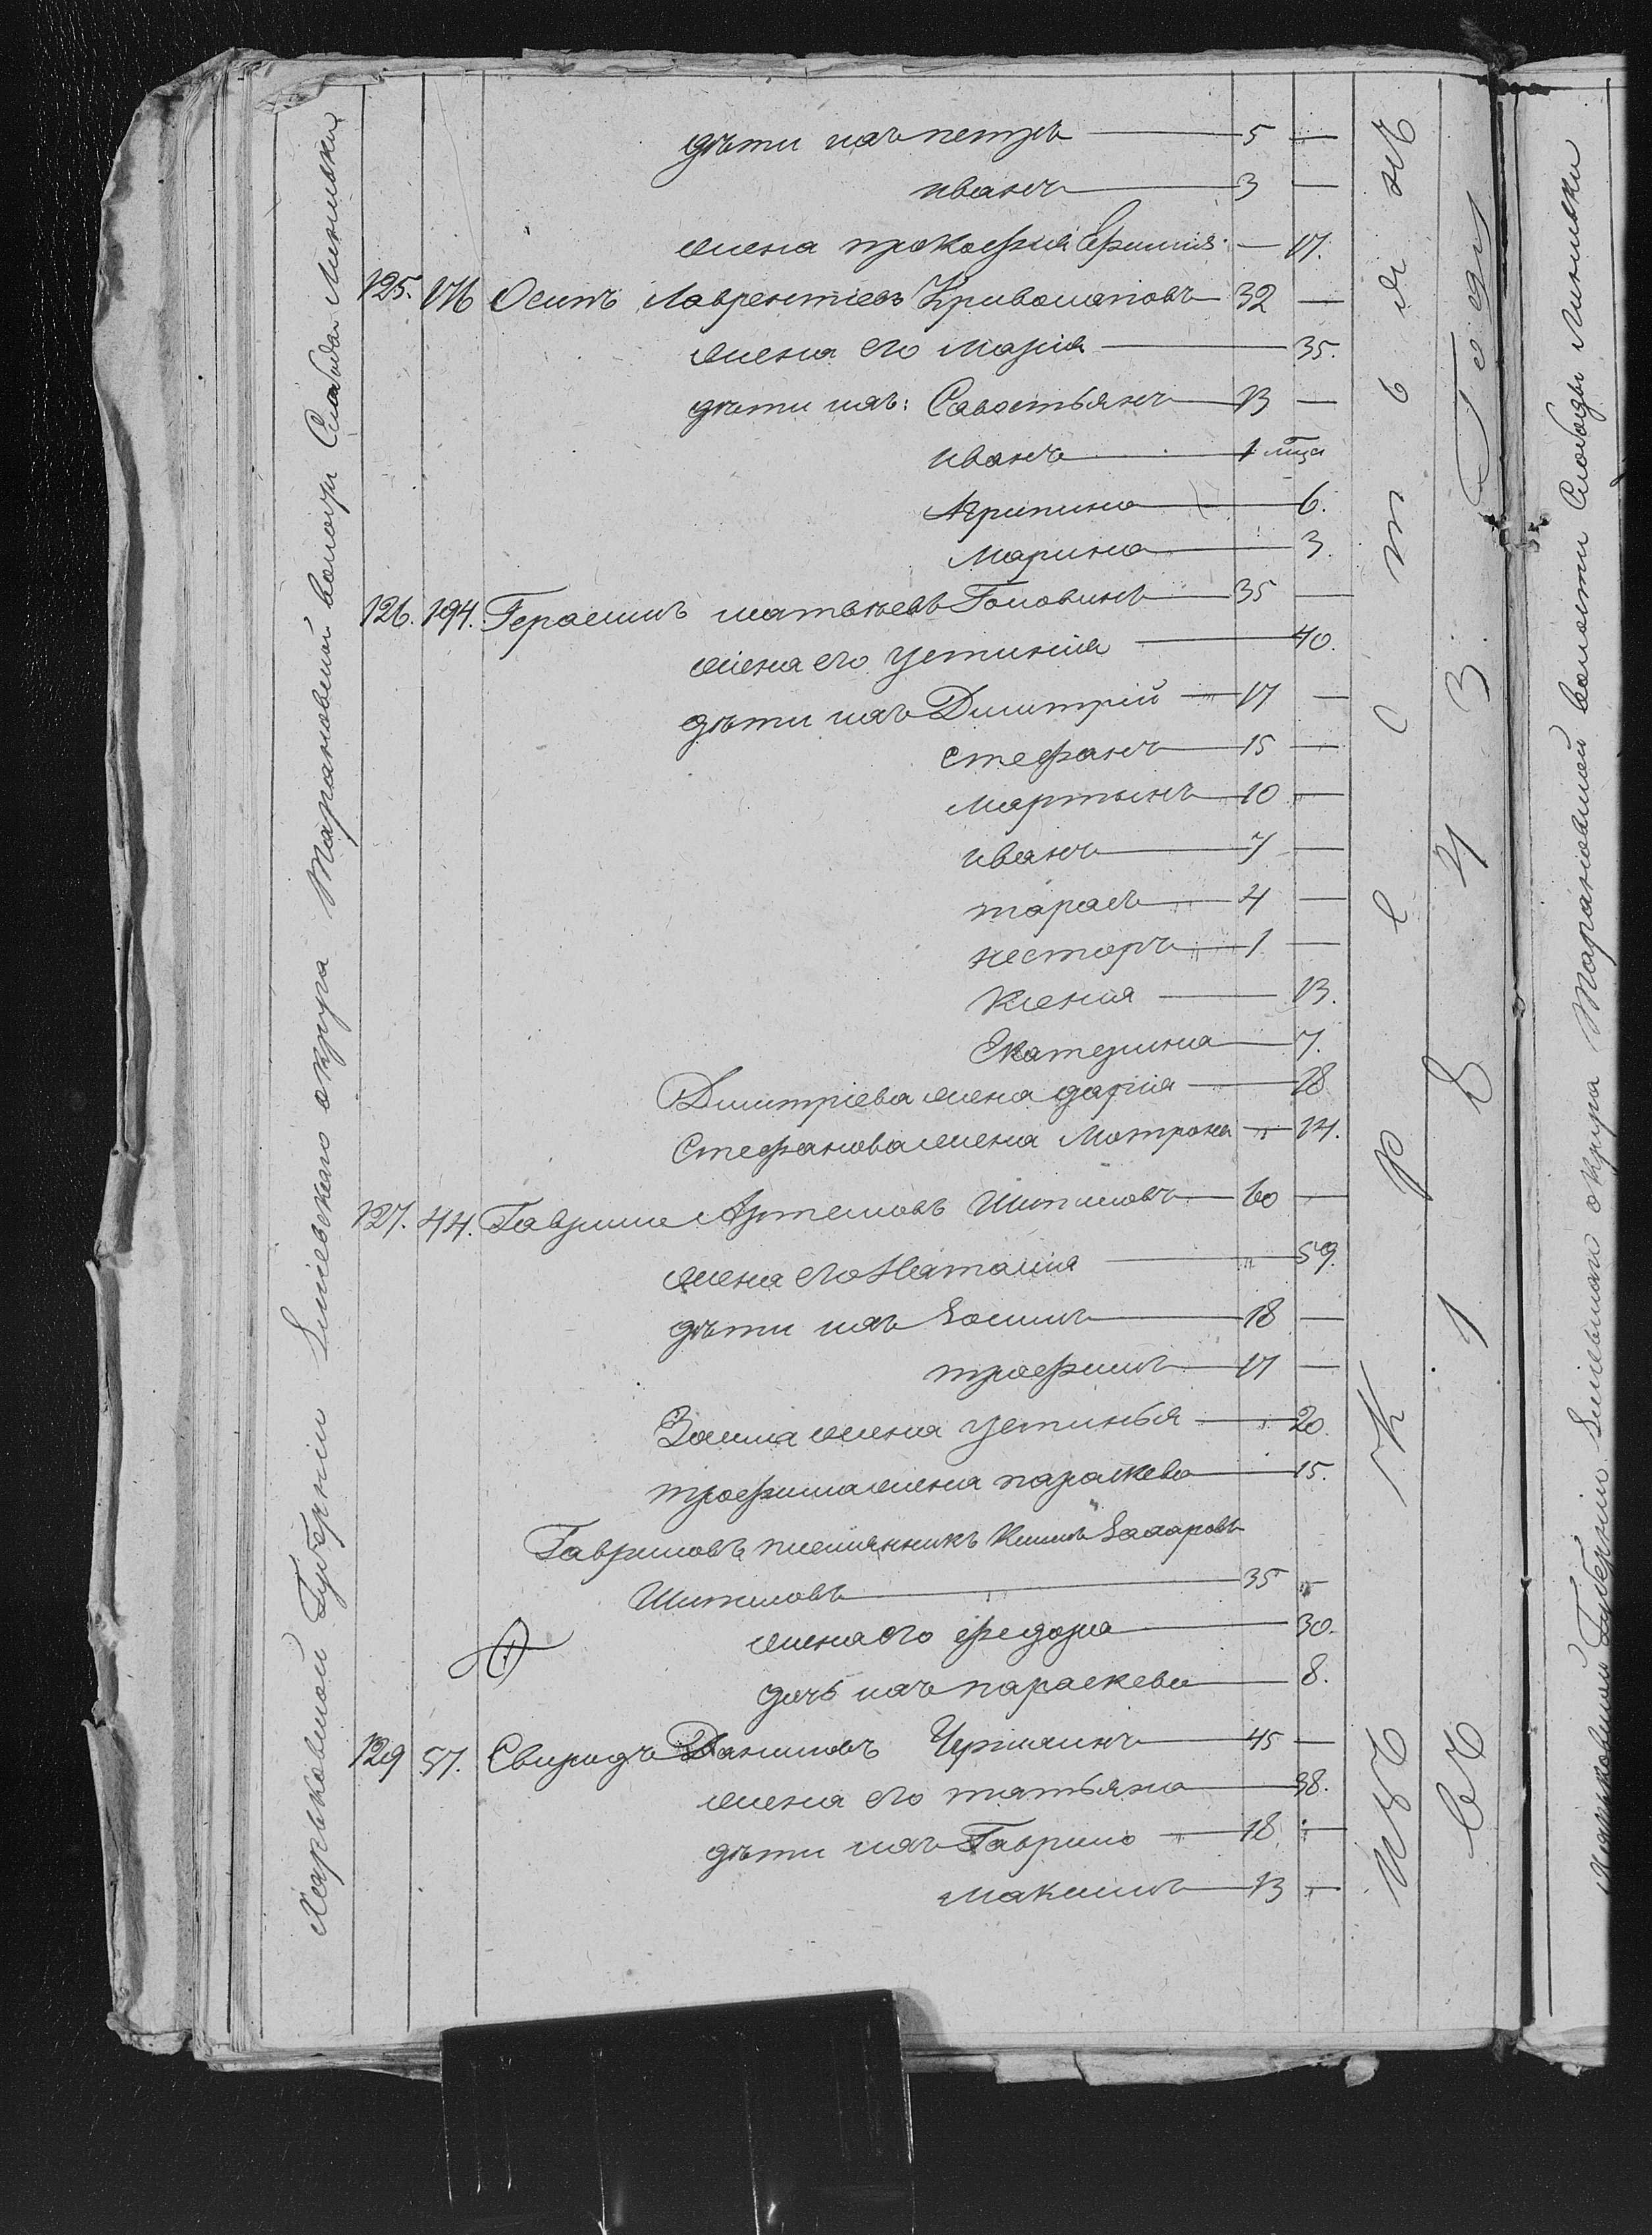 Харьковской Губерніи Зміевского округа Тарановской волости Слабода Линивки
дѣти ихъ петръ — 5 —
иванъ — 3 —
жена прокофия Ефимия — 17.
125. 176 Осипъ Лаврентіевъ Кривошаповъ — 32 —
жена его мария — 35.
дѣти ихъ: Савостьянъ — 13 —
иванъ — 1 мца
Агрипина — 6.
Марина — 3.
126. 194. Герасимъ матвѣевъ Головинъ — 35 —
жена его устиния — 40.
дѣти ихъ Дмитрій — 17 —
стефанъ — 15 —
мартынъ — 10 —
иванъ — 7 —
тарасъ — 4 —
несторъ — 1 —
Ксения — 13.
Екатерина — 7.
Дмитріева жена дария — 18
Стефанова жена Мотрона — 14.
127. 44. Гаврило Артемовъ Шитиловъ — 60 —
жена его Наталия — 59.
дѣти ихъ Зосимъ — 18 —
трофимъ — 17 —
Зосима жена устинья — 20.
трофима жена параскева — 15.
Гавриловъ племянникъ Климъ Захаровъ
Шитиловъ — 35 —
жена его федора — 30.
дочь ихъ параскева — 8.
129 57. Свиридъ Даниловъ — 45 —
жена его татьяна — 38.
дѣти ихъ Гаврило — 18 —
Максимъ — 13 —
изъ крестьянъ
въ 1824 году
Харьковской Губерніи Зміевского округа Тарановской волости Слободы Линивки